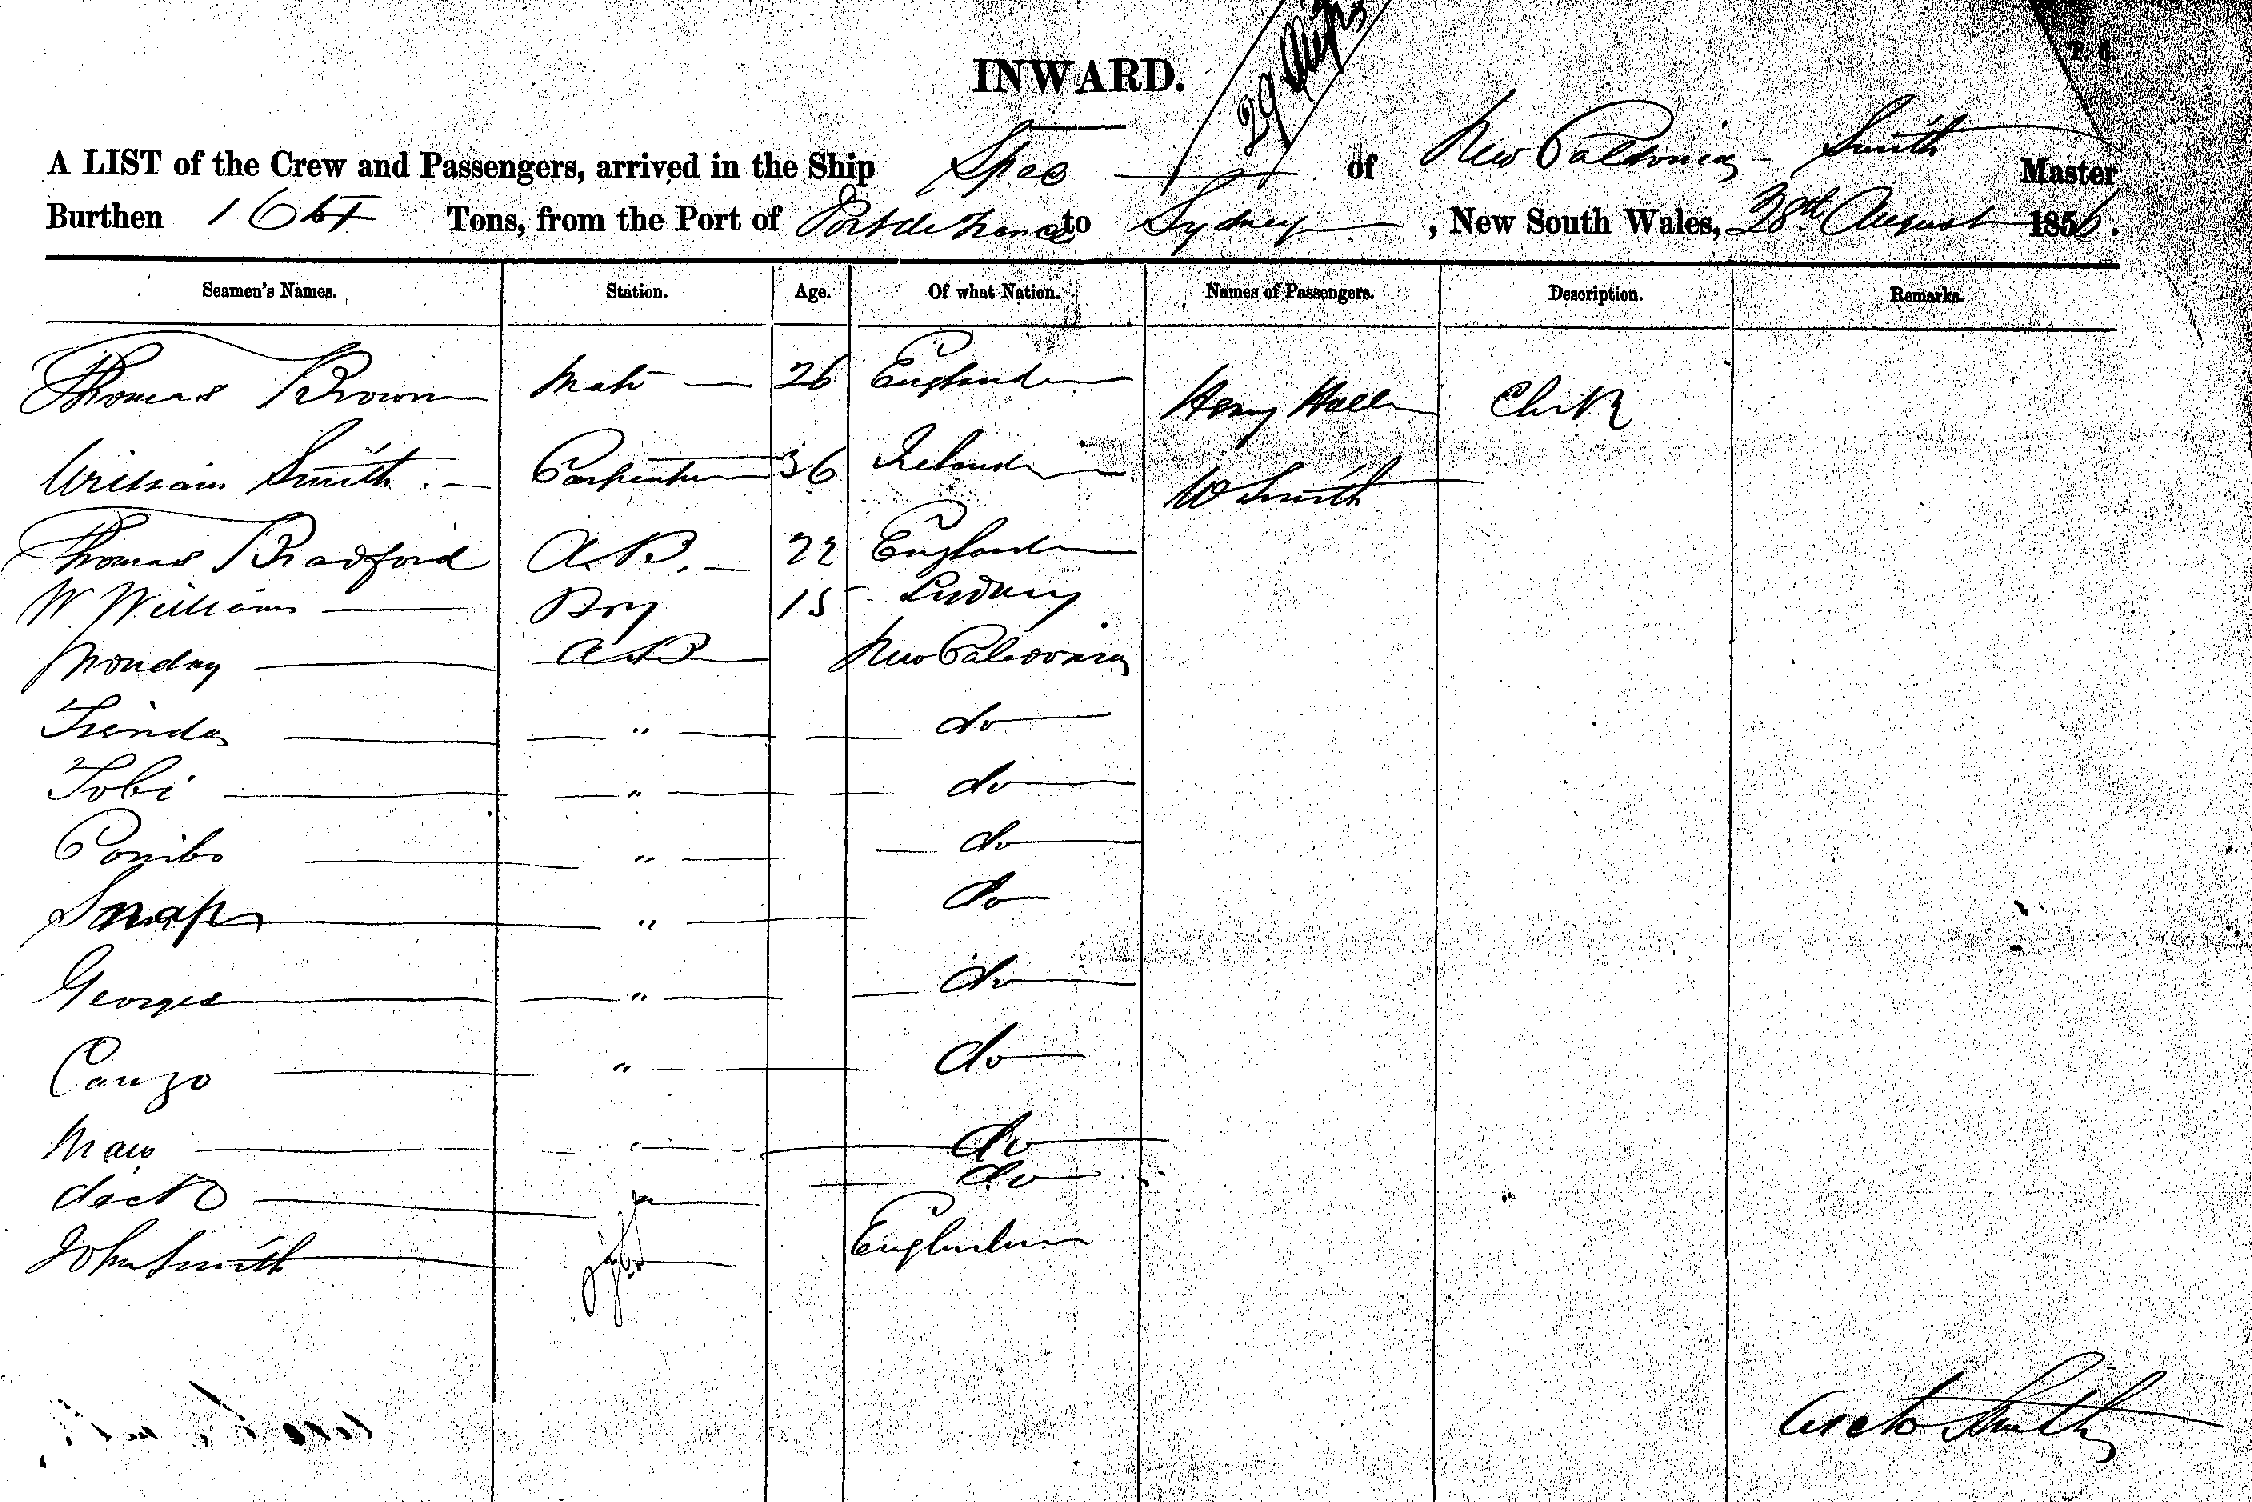 29 Aug
INWARD.
A LIST of the Crew and Passengers, arrived in the Ship Spec of New Caledonia Smith Master
Burthen Tons, from the Port of Port de France to Sydney, New South Wales, 28th August 1856.
Seamen's Names. Station. Age. Of what Nation. Names of Passengers. Description. Remarks.
Thomas Brown Mate 26 England Henry Hall Clerk
William Smith Carpenter 36 Ireland W Smith
Thomas Bradford A.B. 22 England
W Williams Boy 15 Sydney
Monday AB New Caledonia
" do
Tobi " do
" do
Snap " do
George " do
" do
" do
Jack " do
John Smith England
Smith